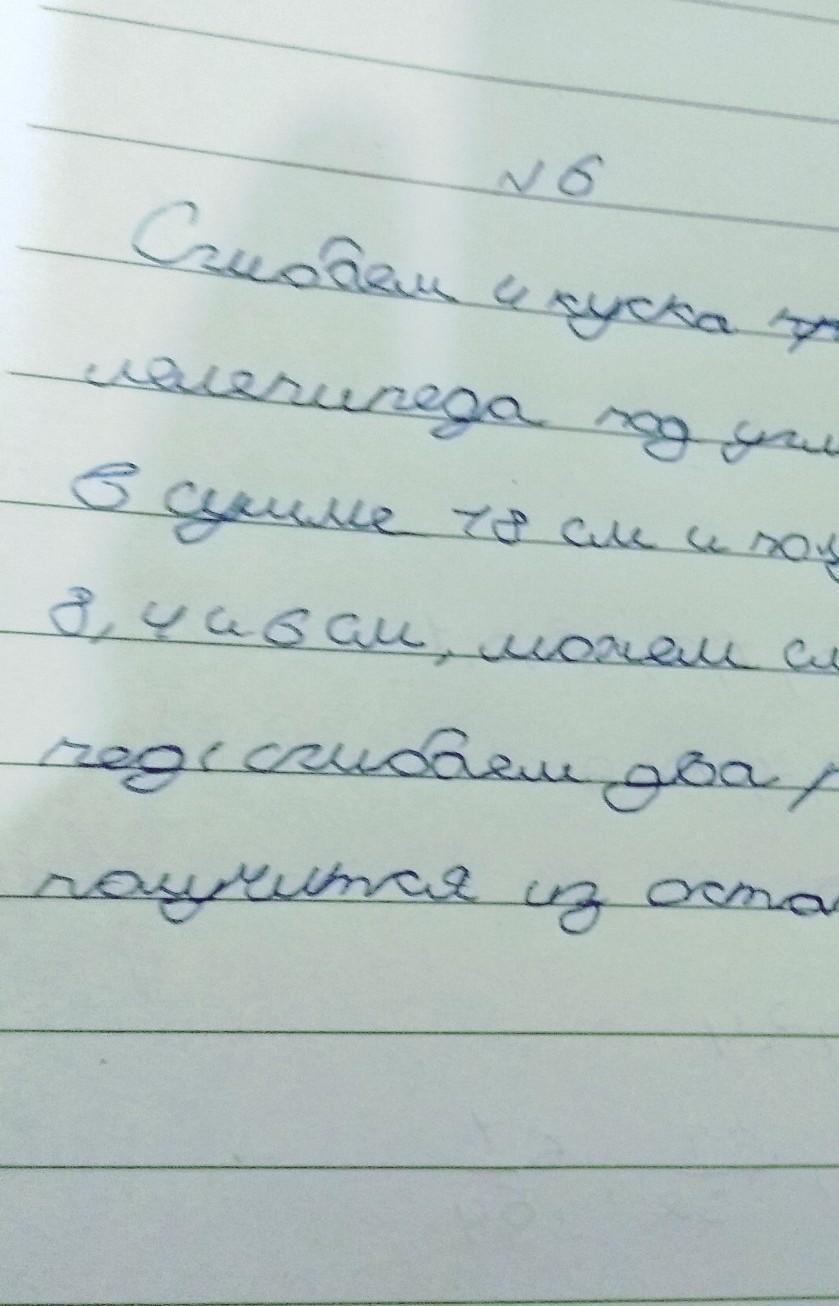 № 6
Сгибаем 4 куска
лелепипеда под
в сумме 18 см и
8, 4 и 6 см, можем
пед: сгибаем два
получится из